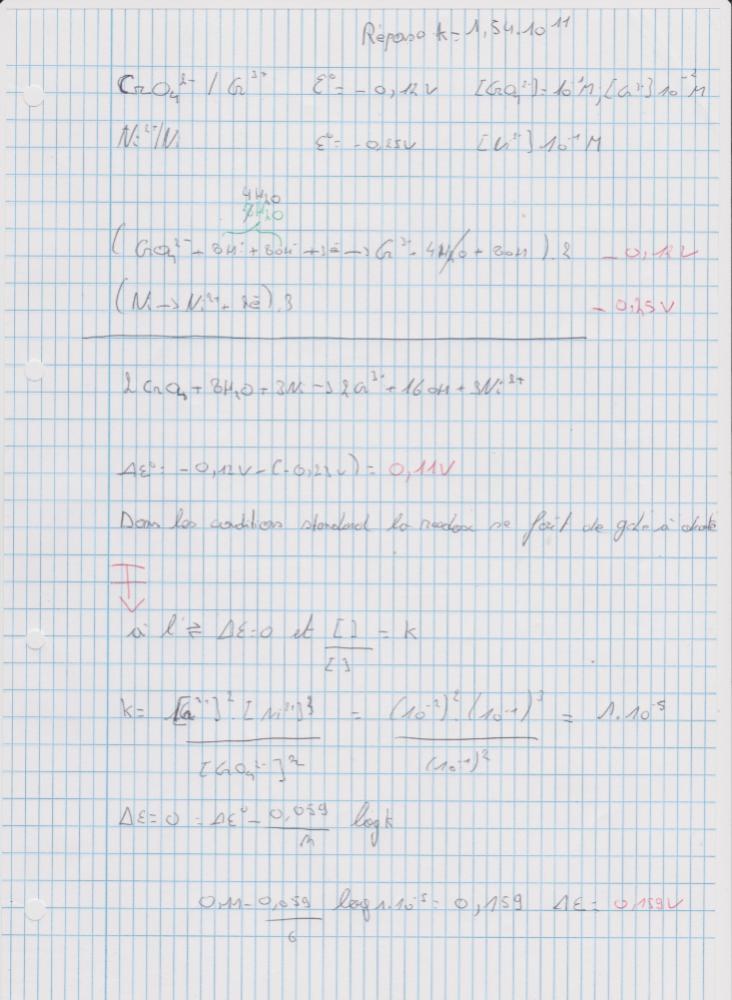 Réponse k = 1,54.10¹¹
CrO₄²⁻ / Cr³⁺ ε° = - 0,12V [CrO₄²⁻] = 10⁻¹M, [Cr³⁺] 10⁻²M
Ni²⁺/Ni ε° = -0,25V [Ni²⁺] 10⁻¹ M
4H₂O
8H₂O
( CrO₄²⁻ + 8H⁺ + 8OH⁻ + 3é → Cr³⁺ + 4H₂O + 8OH ) . 2 - 0,12V
( Ni → Ni²⁺ + 2é ) . 3 - 0,25V
2 CrO₄ + 8H₂O + 3Ni → 2Cr³⁺ + 16 OH + 3Ni²⁺
Δε° = - 0,12V - (-0,23V) = 0,11V
Dans les condition standard la redox se fait de gche à droite
à l'⇌ Δε=0 et [ ] / [ ] = k
k = [Cr³⁺]² . [Ni²⁺]³ / [CrO₄²⁻]² = (10⁻²)² . (10⁻¹)³ / (10⁻¹)² = 1.10⁻⁵
Δε = 0 = Δε° - 0,059 / n log k
0,11 - 0,059 / 6 log 1.10⁻⁵ = 0,159 Δε = 0,159V